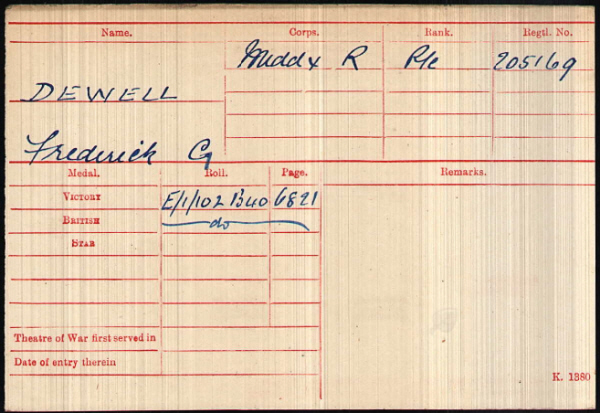 Name. Corps. Rank. Regtl. No.
Middx R Pte 205169
DEWELL
Frederick G
Medal. Roll. Page. Remarks.
VICTORY E/1/102 B40 6821
BRITISH do
STAR
Theatre of War first served in
Date of entry therein
K. 1380